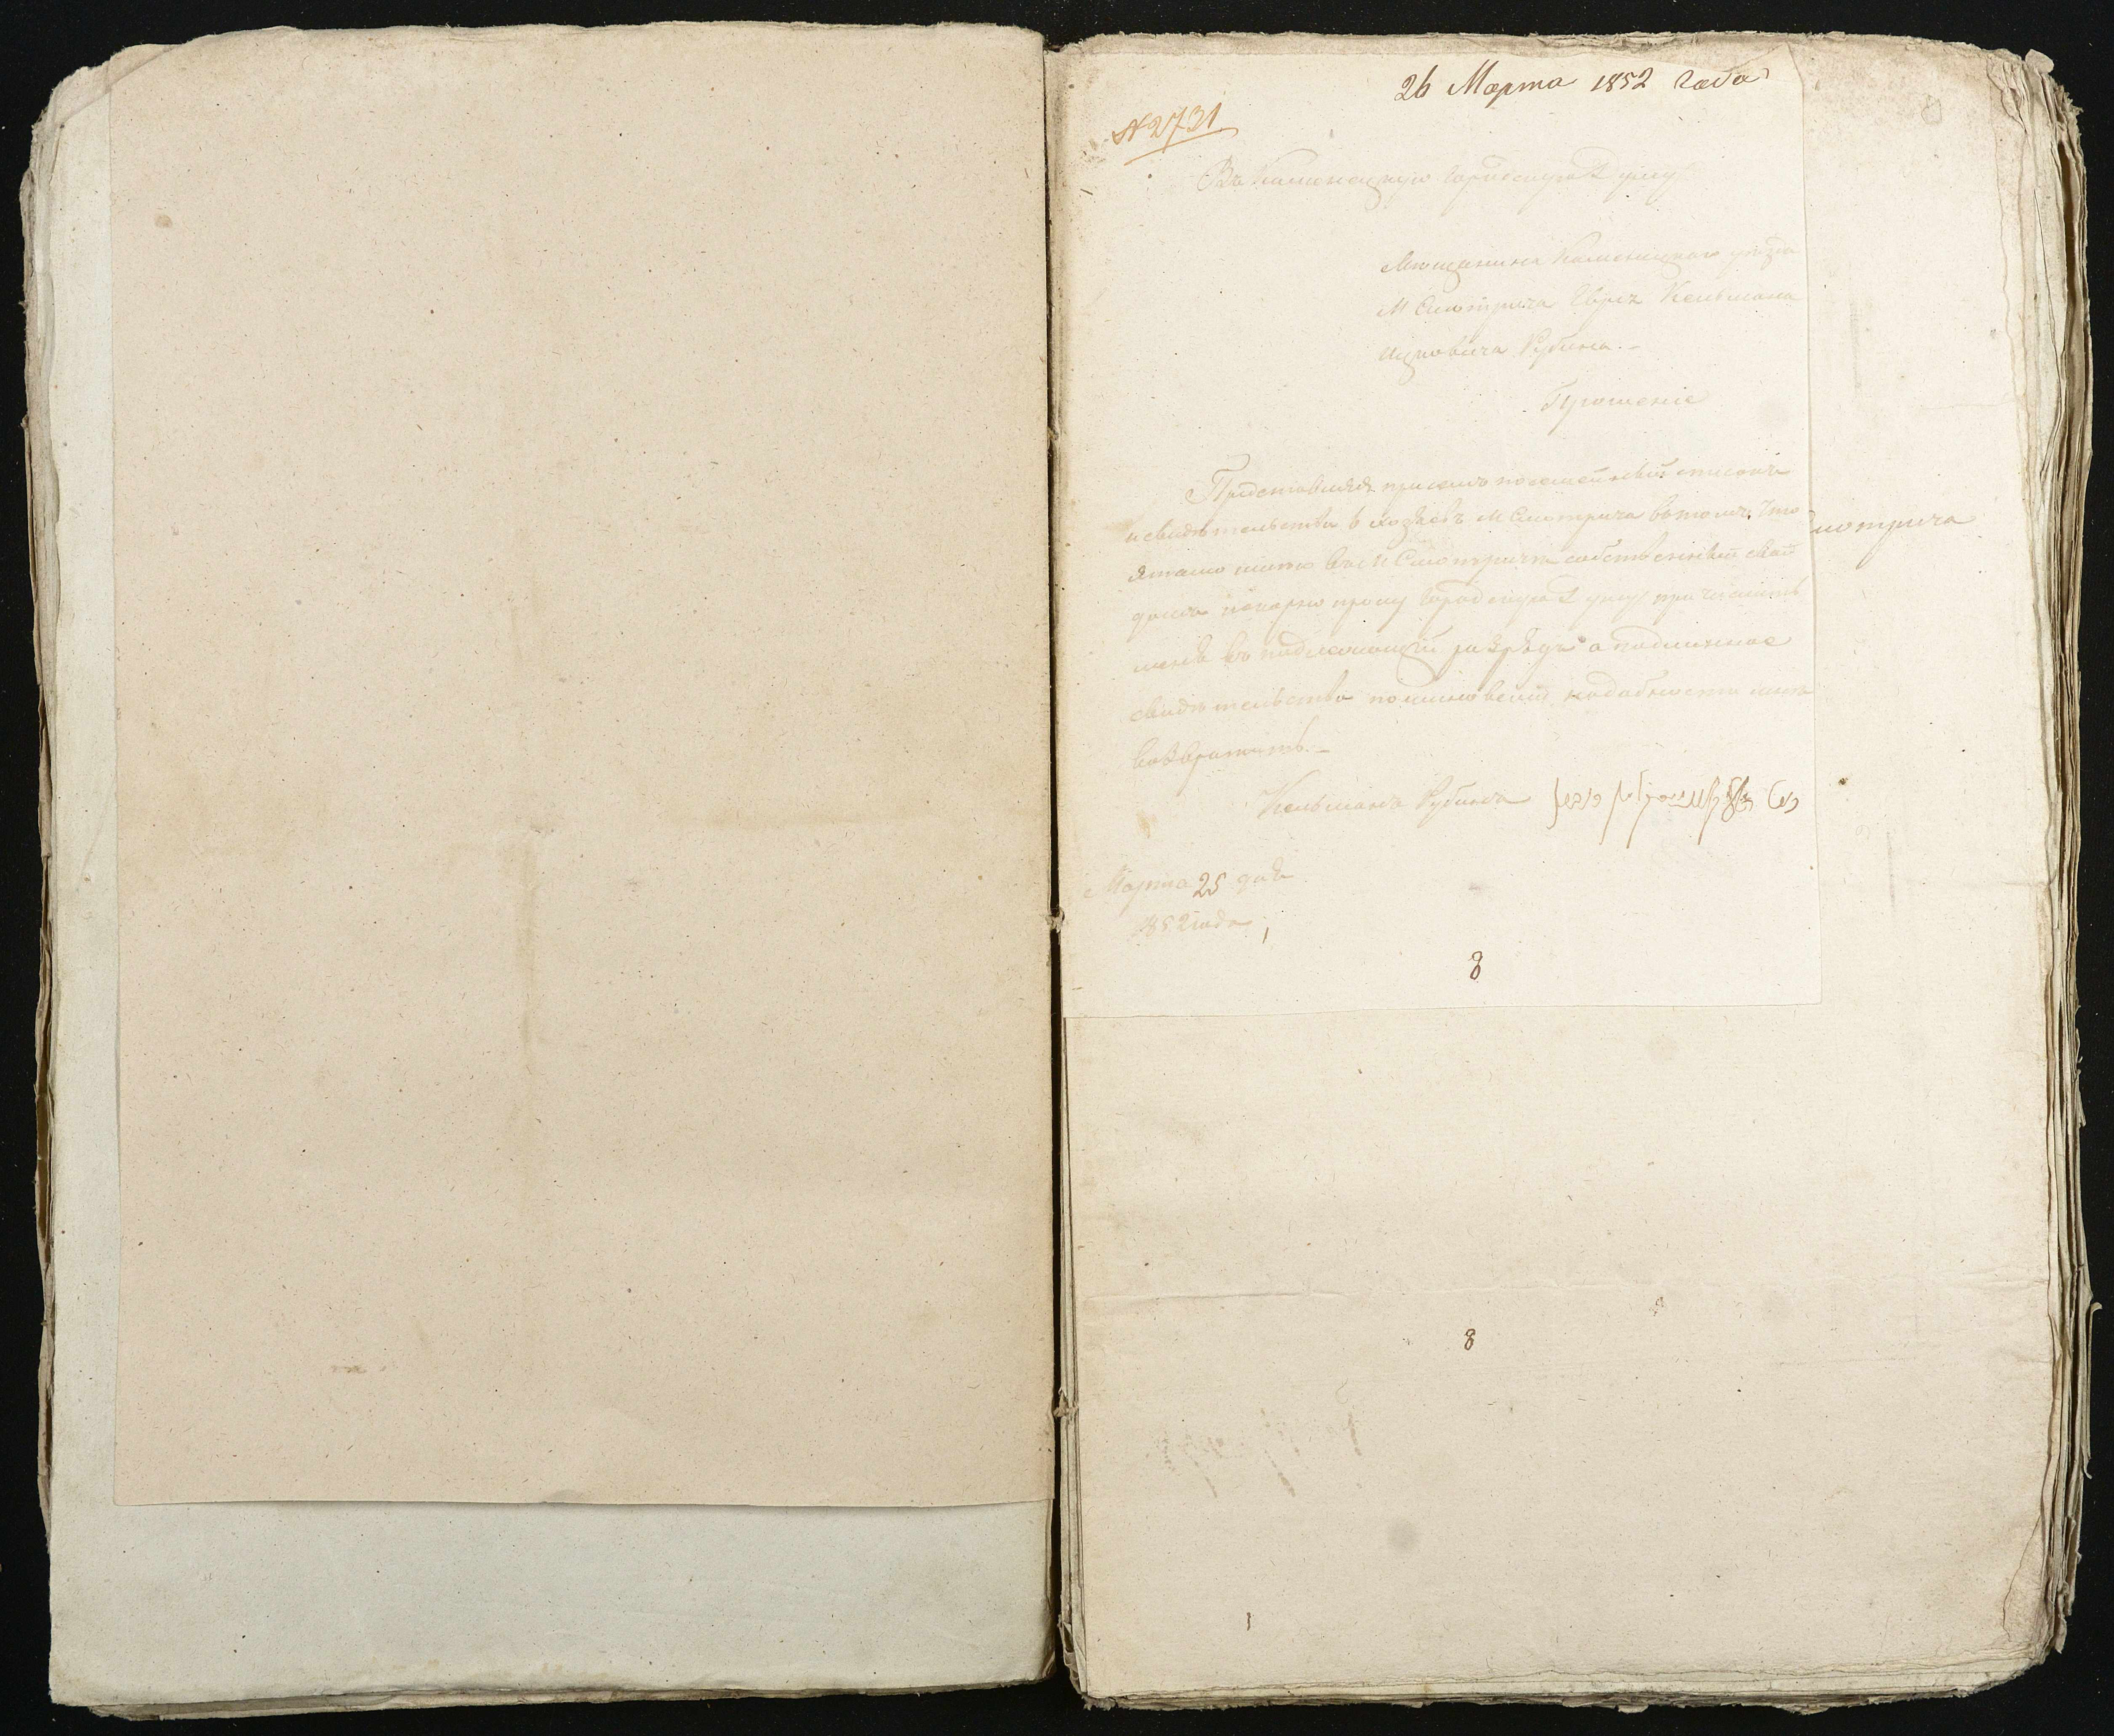 26 Марта 1852 года
№ 2731
Въ Каменецкую Городскую Думу
Мещанина Каменецкаго уезда
М Смотрича Еврея Кельмана
Ицковича Рубина.-
Прошение
Представляя при семъ посемейный списокъ
и свидетельство 6 хозяевъ М Смотрича въ томъ, что
я тамо имею въ М Смотриче собственный свой
домъ покорно прошу Городскую Думу причислить
меня въ надлежащий разрядъ а подлинное
свидетельство по миновении надобности мне
возвратить.-
Кельманъ Рубинъ
мотрича
Марта 25 дня
1852 года
8
8